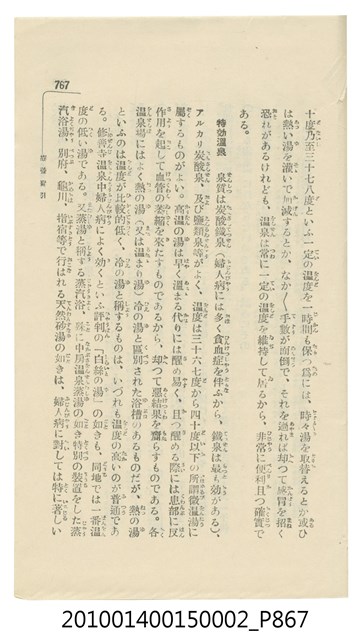 767
療養質引
十度乃至三十七八度といふ一定の溫度を一時間も保つ爲には、時々湯を取替えるとか或ひ
は熱い湯を灌いで加減するとか、なか〳〵手數が面倒で、それを過れば却つて感冒を招く
恐れがあるけれども、溫泉は常に一定の溫度を維持して居るから、非常に便利且つ確實で
ある。
特効溫泉 泉質は炭酸鐵泉（婦人病には多く貧血症を伴ふから、鐵泉は最も効がある）、
アルカリ炭酸泉、及び鹽類泉等がよく、溫度は三十六七度から四十度以下の所謂微溫湯に
屬するものがよい。高溫の湯は早く溫まる代りには醒め易く、且つ醒める際には患部に反
作用を起して血管の萎縮を來たすものであるから、却つて惡結果を齎らすものである。各
溫泉場にはよく熱の湯（又は溫まり湯）冷の湯と區別された浴槽のあるものだが、熱の湯
といふのは溫度が比較的低く、冷の湯と稱するものは、いづれも溫度の高いのが普通であ
る。修善寺溫泉中婦人病によく効くといふ評判の「白絲の湯」の如きも、同地では一番溫
度の低い湯である。又蒸湯と稱する蒸汽浴、殊に中房溫泉蒸湯の如き特別の裝置をした蒸
汽浴湯、別府、龜川、指宿等で行はれる天然砂湯の如きは、婦人病に對しては特に著しい
201001400150002_P867